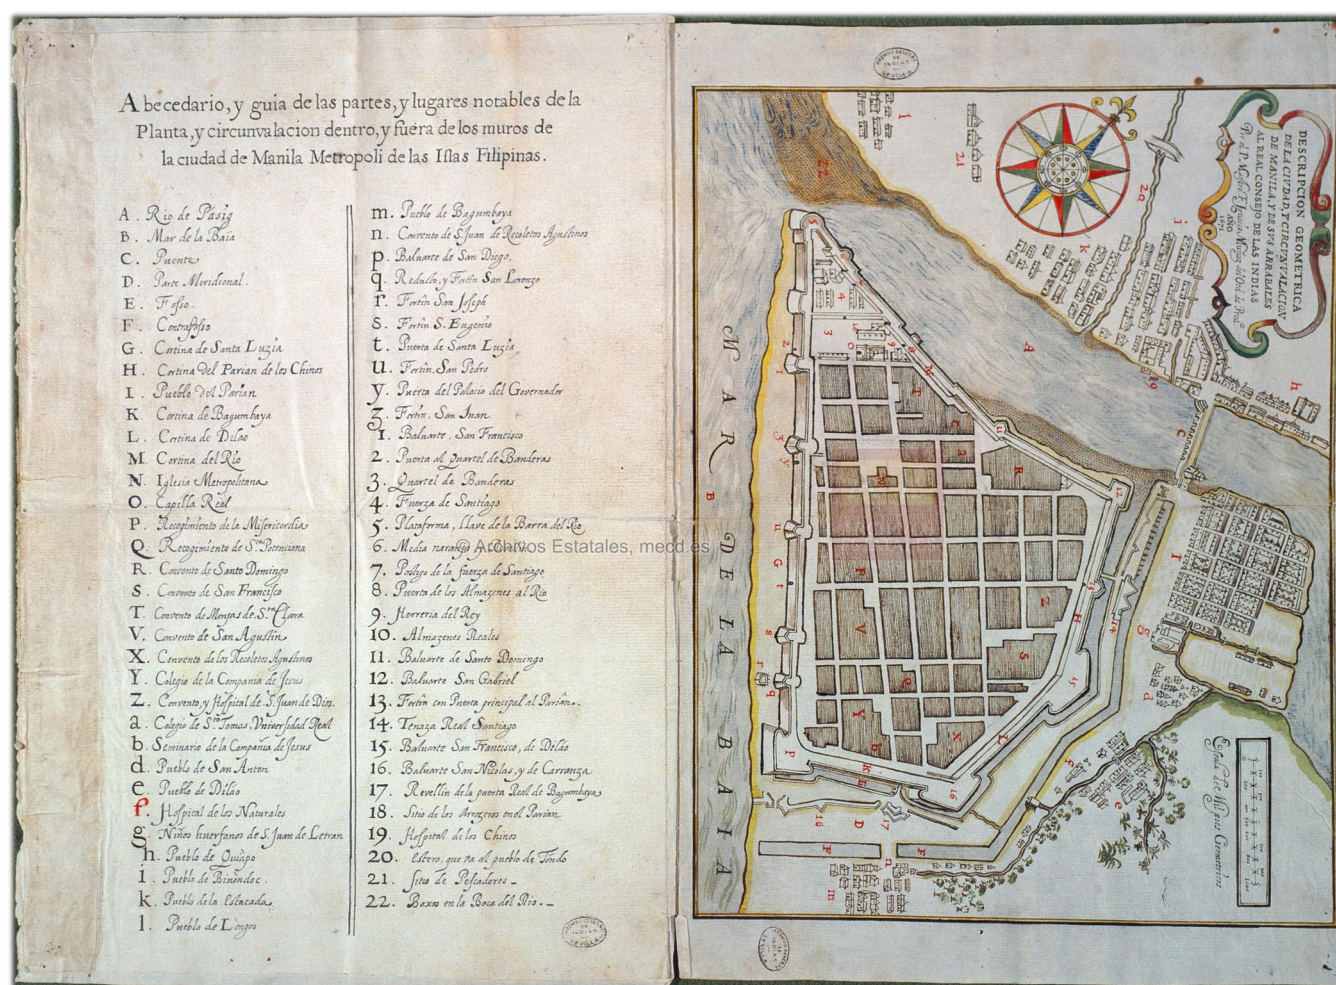 Abecedario, y guia de las partes, y lugares notables de la
Planta, y circunvalacion dentro, y fuera de los muros de
la ciudad de Manila Metropoli de las Islas Filipinas.
A. Rio de Pasig
B. Mar de la Baia
C. Puente
D. Parte Meridional.
E. Fosso.
F. Contrafosso
G. Cortina de Santa Luzia
H. Cortina del Parian de los Chinos
I. Pueblo del Parian
K. Cortina de Bagumbaya
L. Cortina de Dilao
M. Cortina del Rio
N. Iglesia Metropolitana
O. Capilla Real
P. Recogimiento de la Misericordia
Q. Recogimiento de Sta Potenciana
R. Convento de Santo Domingo
S. Convento de San Francisco
T. Convento de Monjas de Sta Clara
V. Convento de San Agustin
X. Convento de los Recoletos Agustinos
Y. Colegio de la Compania de Jesus
Z. Convento, y Hospital de S. Juan de Dios.
a. Colegio de Sto Tomas, Vniversidad Real
b. Seminario de la Compania de Jesus
d. Pueblo de San Anton
e. Pueblo de Dilao
f. Hospital de los Naturales
g. Niños huerfanos de S. Juan de Letran
h. Pueblo de Quiapo
i. Pueblo de Binondoc.
k. Pueblo de la Estacada
l. Pueblo de Longos
m. Pueblo de Bagumbaya
n. Convento de S. Juan de Recoletos Agustinos
p. Baluarte de San Diego.
q. Reducto, y Fortin San Lorenzo
r. Fortin San Joseph
s. Fortin S. Eugenio
t. Puerta de Santa Luzia
u. Fortin San Pedro
y. Puerta del Palacio del Governador
z. Fortin. San Juan
1. Baluarte, San Francisco
2. Puerta al Quartel de Banderas
3. Quartel de Banderas
4. Fuerza de Santiago
5. Plataforma, llave de la Barra del Rio
6. Media naranja
7. Postigo de la fuerza de Santiago
8. Puerta de los Almazenes al Rio
9. Herreria del Rey
10. Almazenes Reales
11. Baluarte de Santo Domingo
12. Baluarte San Gabriel
13. Fortin con Puerta principal al Parian.
14. Tenaza Real Santiago
15. Baluarte San Francisco, de Dilao
16. Baluarte San Nicolas, y de Carranza
17. Revellin de la puerta Real de Bagumbaya
18. Sitio de los Arrozeros en el Parian
19. Hospital de los Chinos
20. Estero, que va al pueblo de Tondo
21. Sitio de Pescadores
22. Baxos en la Boca del Rio.
© Archivos Estatales, mecd.es
DESCRIPCION GEOMETRICA
DE LA CIVDAD, Y CIRCUNVALACION
DE MANILA, Y DE SVS ARRABALES
AL REAL CONSEJO DE LAS INDIAS
AÑO 1671
MAR DE LA BAIA
ARCHIVO GENERAL DE INDIAS SEVILLA